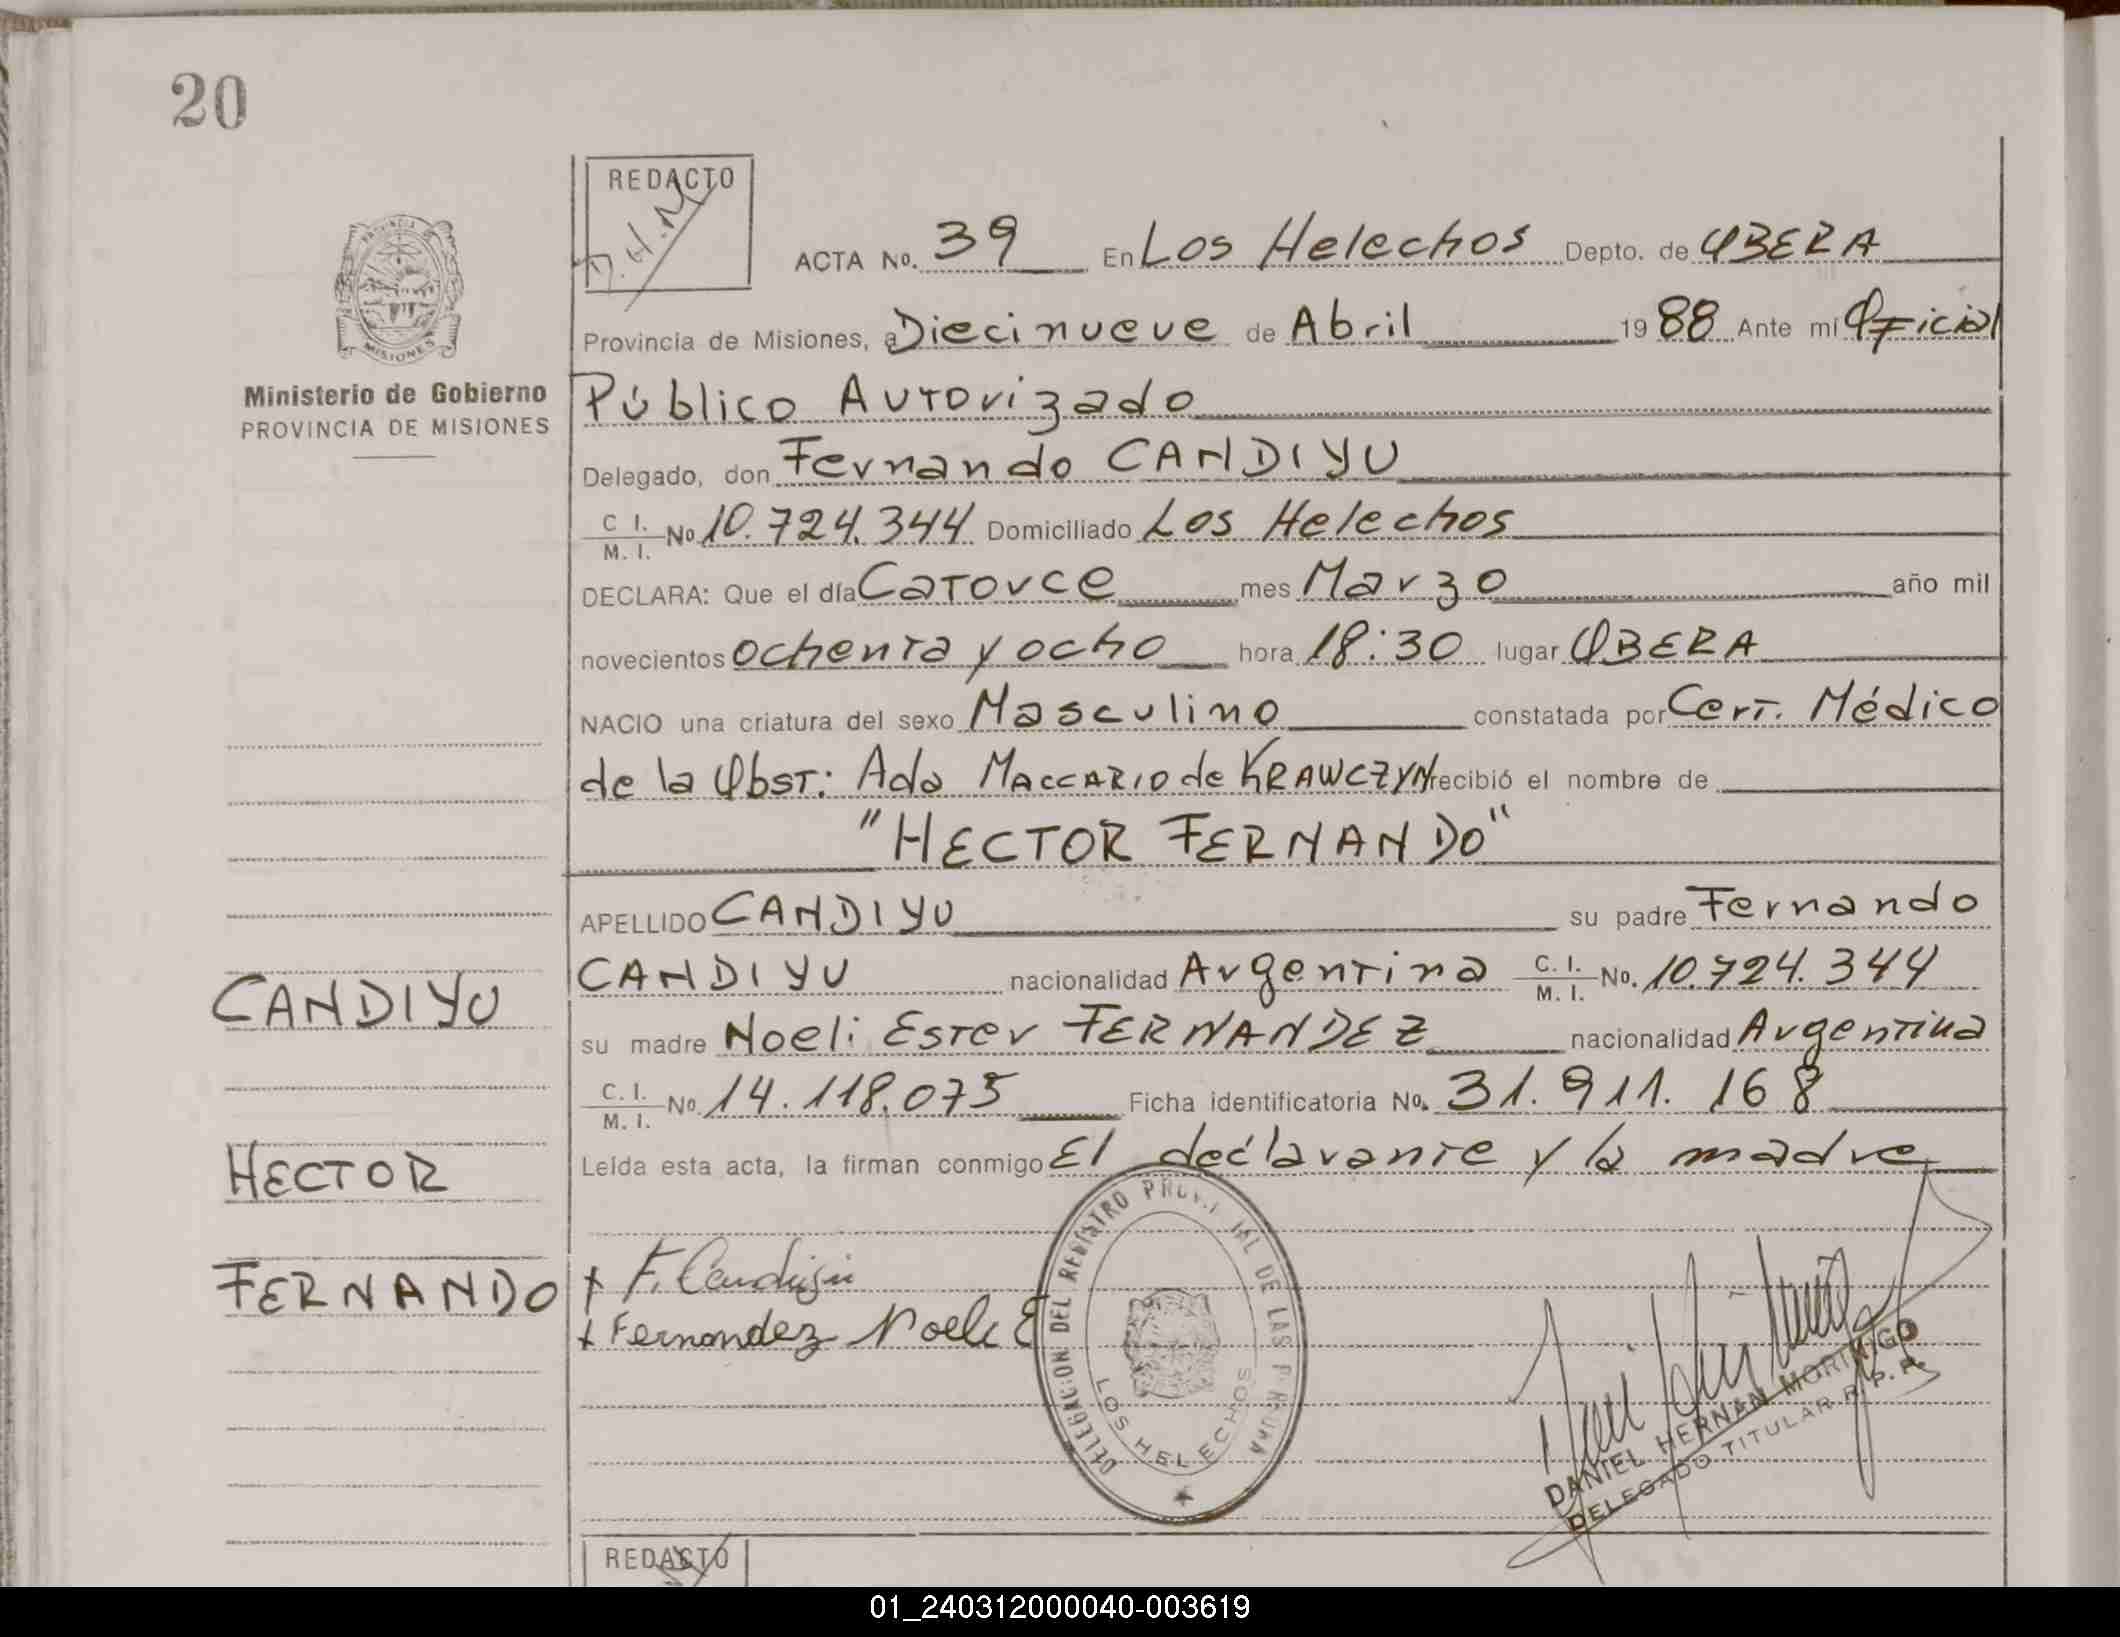 20
REDACTO
D.H.M
ACTA No. 39 En Los Helechos Depto. de OBERA
Provincia de Misiones, a Diecinueve de Abril 1988 Ante mí Oficial
Público Autorizado
Delegado, don Fernando CANDIYU
C I. M. I. No 10.724.344 Domiciliado Los Helechos
DECLARA: Que el día Catorce mes Marzo año mil
novecientos ochenta y ocho hora 18:30 lugar OBERA
NACIO una criatura del sexo Masculino constatada por Cert. Médico
de la Obst: Ada MACCARIO de KRAWCZYN recibió el nombre de
"HECTOR FERNANDO"
APELLIDO CANDIYU su padre Fernando
CANDIYU nacionalidad Argentina C. I. M. I. No. 10.724.344
su madre Noeli Ester FERNANDEZ nacionalidad Argentina
C. I. M. I. No. 14.118.075 Ficha identificatoria No. 31.911.168
Leída esta acta, la firman conmigo El declarante y la madre
PROVINCIA DE
MISIONES
Ministerio de Gobierno
PROVINCIA DE MISIONES
CANDIYU
HECTOR
FERNANDO
+ F. Candiyu
+ Fernandez Noeli E
DELEGACION DEL REGISTRO PROVINCIAL DE LAS PERSONAS
LOS HELECHOS
DANIEL HERNAN MORINIGO
DELEGADO TITULAR R. P. P.
REDACTO
01_240312000040-003619